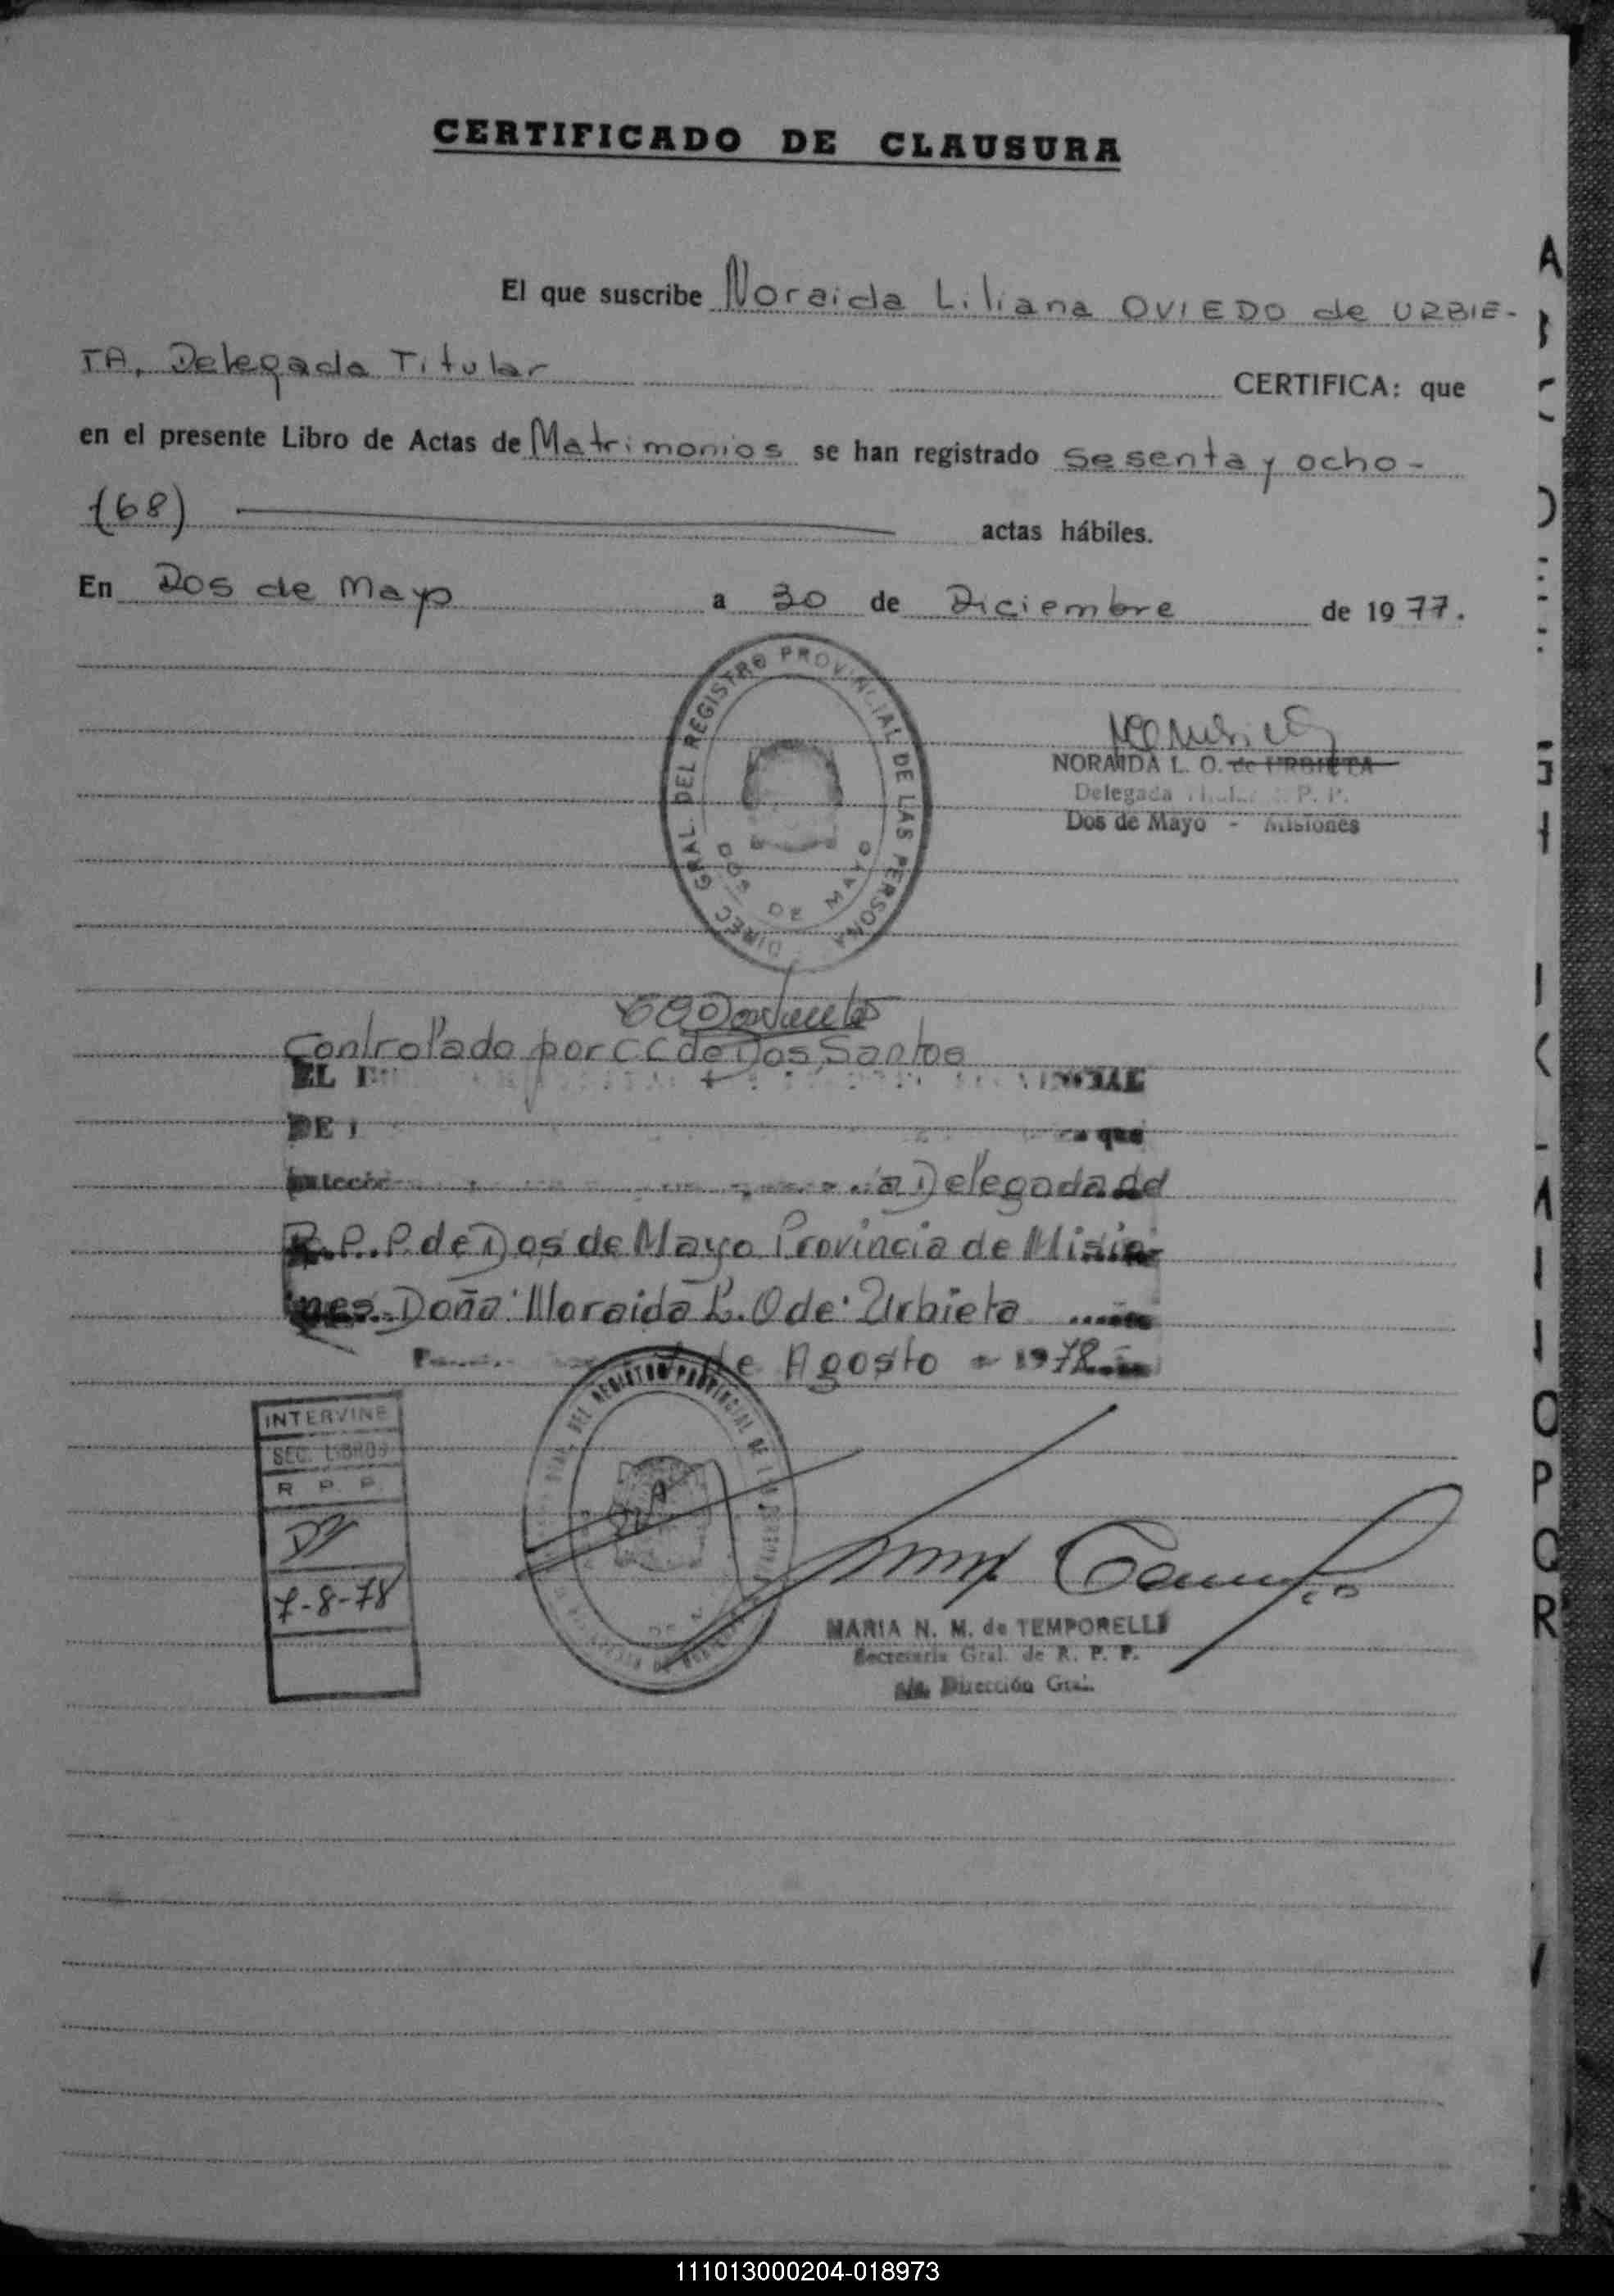 CERTIFICADO DE CLAUSURA
El que suscribe Noraida Liliana OVIEDO de URBIE-
TA, Delegada Titular CERTIFICA: que
en el presente Libro de Actas de Matrimonios se han registrado sesenta y ocho-
(68) actas hábiles.
En Dos de Mayo a 30 de Diciembre de 1977.
DIREC. GRAL. DEL REGISTRO PROVINCIAL DE LAS PERSONA
DOS DE MAYO
NORAIDA L. O. de URBIETA
Delegada P. P.
Dos de Mayo - Misiones
Controlado por CC de Dos Santos
EL
DE que
a Delegada del
R.P.P. de Dos de Mayo Provincia de Misio
nes. Doña Noraida L. O de Urbieta
7 de Agosto 1978
DEL REGISTRO PROVINCIAL DE LAS
INTERVINE
SEC. LIBROS
R P P.
7-8-78
MARIA N. M. de TEMPORELLI
Secretaria Gral. de R. P. P.
a/c. Dirección Gral.
111013000204-018973